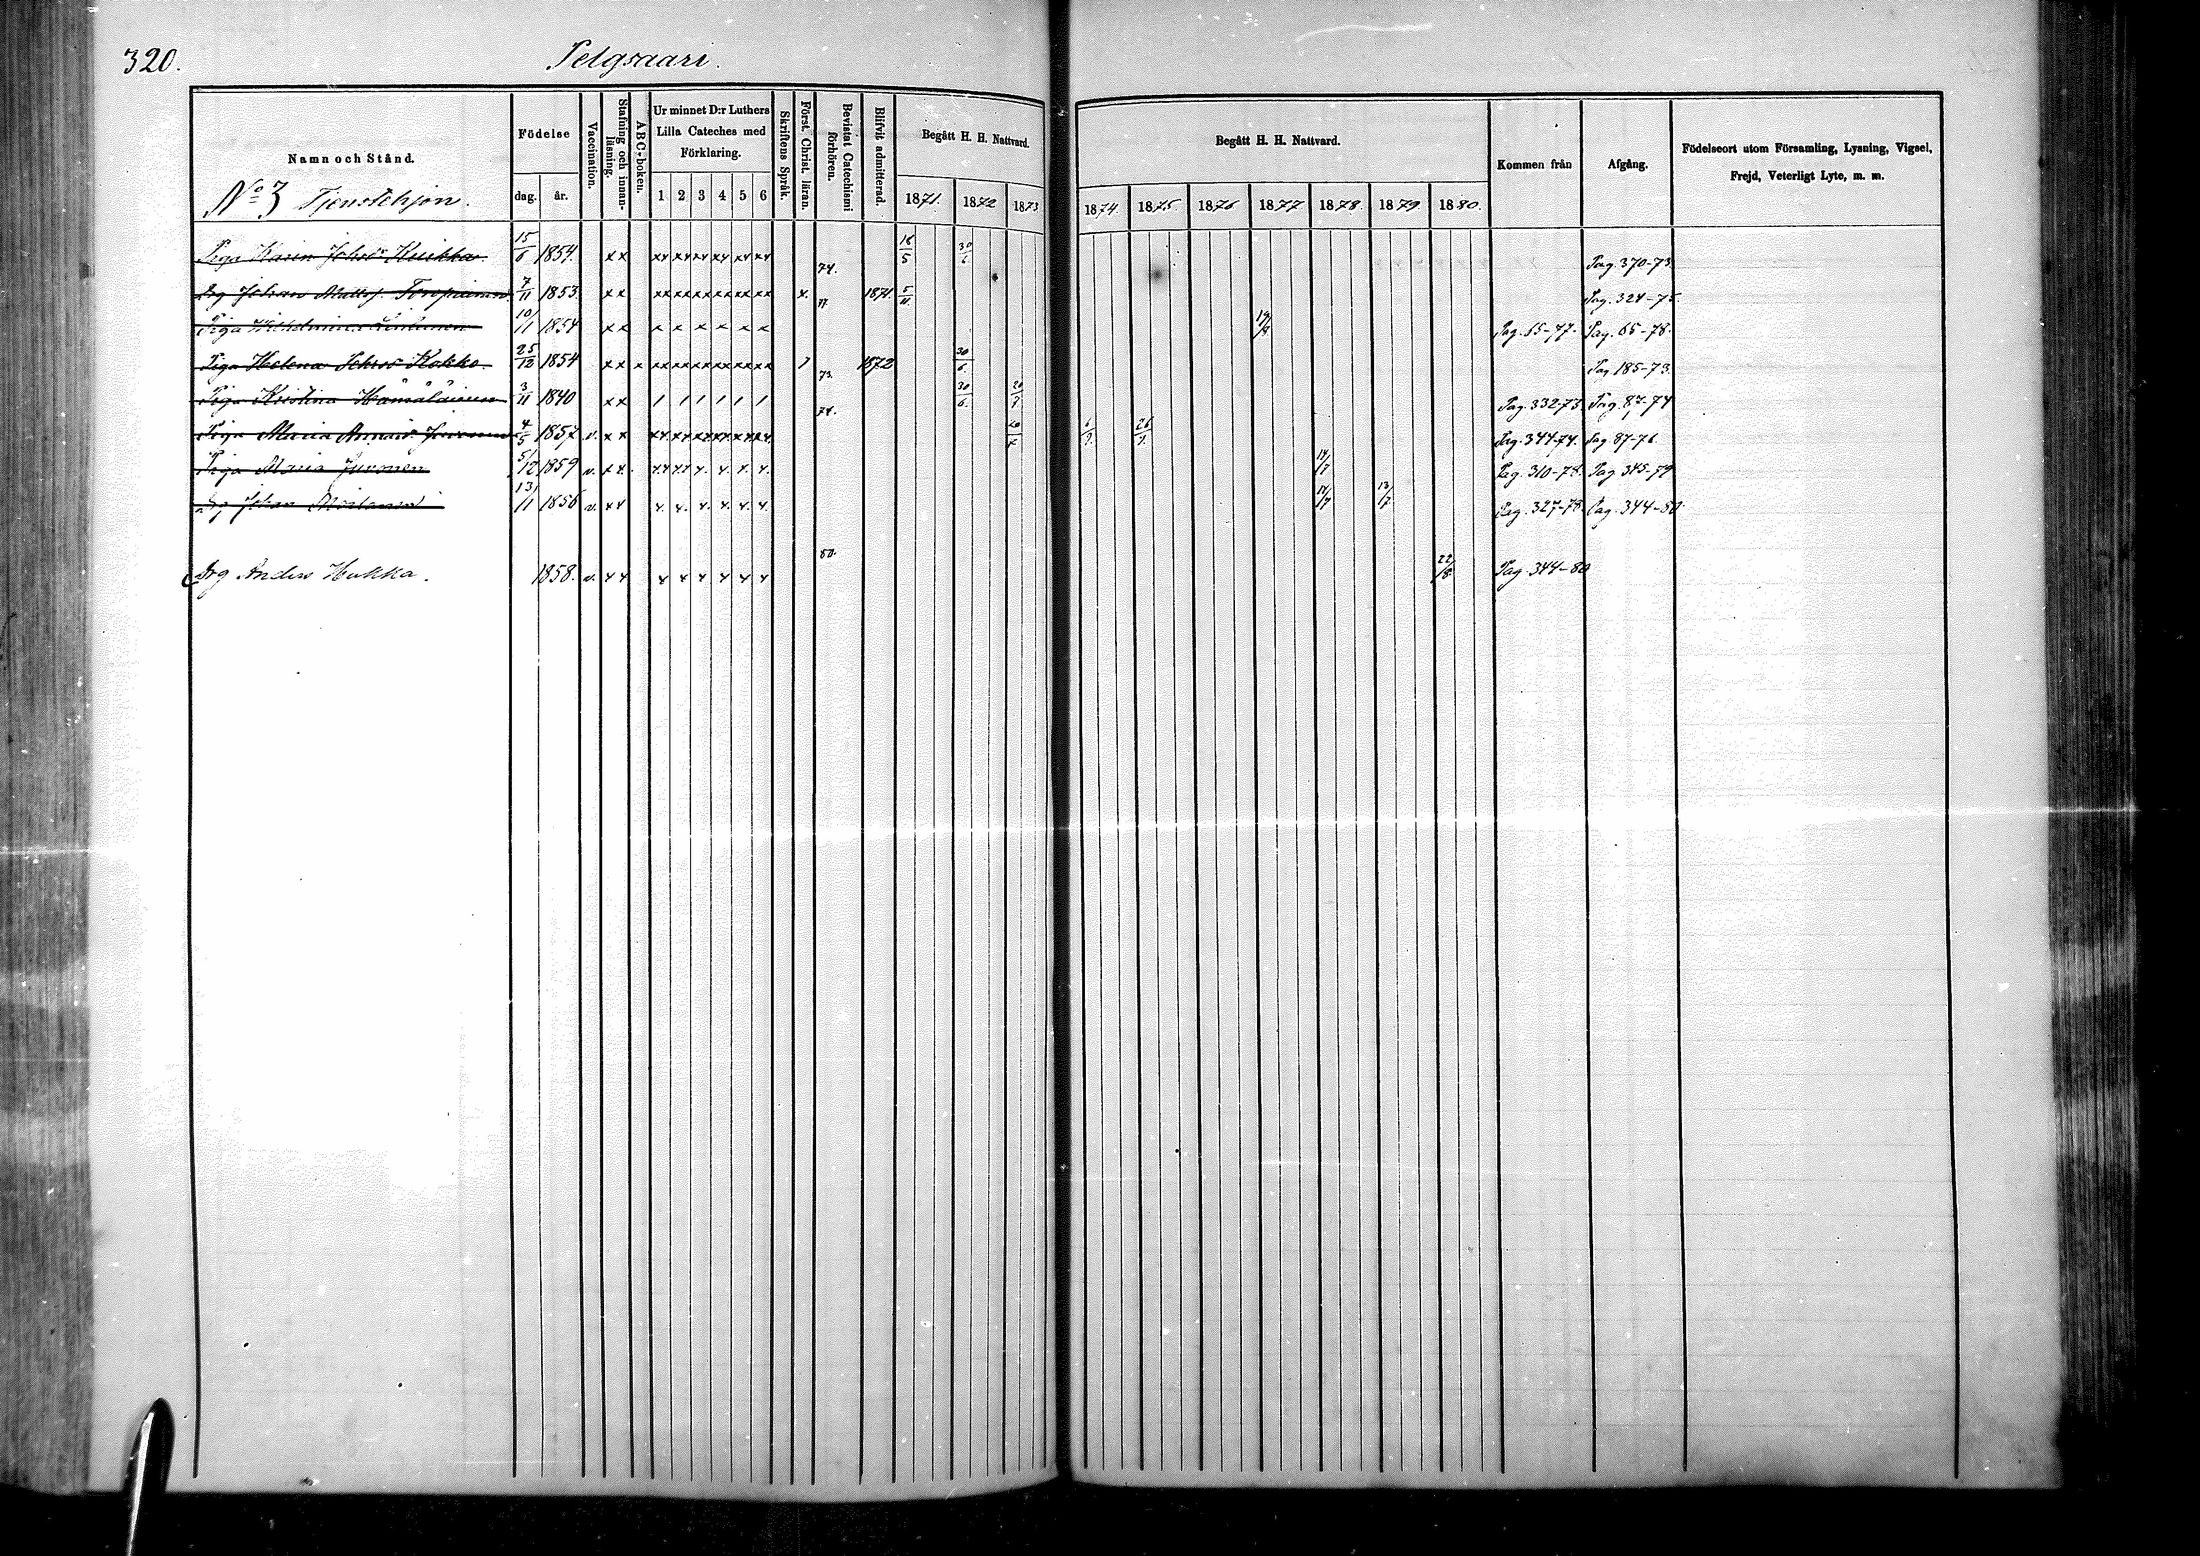 320.
Pelgsaari.
Namn och Stånd.
No 3 Tjenstehjon.
Födelse
dag. år.
Vaccination.
Stafning och innan-läsning.
ABC-boken.
Ur minnet D:r Luthers Lilla Cateches med Förklaring.
1 2 3 4 5 6
Skriftens Språk.
Först. Christ. läran.
Bevistat Catechismi förhören.
Blifvit admitterad.
Begått H. H. Nattvard.
1871. 1872 1873
Begått H. H. Nattvard.
1874. 1875 1876 1877 1878. 1879 1880.
Kommen från
Afgång.
Födelseort utom Församling, Lysning, Vigsel, Frejd, Veterligt Lyte, m. m.
Piga Karin Kuikka. 15/6 1854. xx 74. 16/5 30/6 Pag. 370-73.
Drg Johan 7/11 1853. xx x. 77 1871. 5/11 Pag. 324-75.
Piga 10/11 1854 xx x x x x x x 19/8 Pag. 65-77. Pag. 65-78.
Piga Helena Kokko. 25/12 1854 xx x 73. 1872 30/6. Pag. 185-73.
Piga Kristina Hämäläinen 3/11 1840 xx / / / / / / 74. 30/6. 20/7 Pag. 332-73. Pag. 87-74
Piga Maria 4/5 1857 v. xx 20/7 6/7. 26/7. Pag. 344-74. Pag 87-76.
Piga Maria Juvonen 5/12 1859 v. xx. 14/7 Pag. 310-78. Pag 345-79
Drg Johan 13/11 1856 v. xx x. x. x. x. x. x. 14/7 13/7 Pag. 327-78. Pag. 344-80.
80.
Drg Anders Hukka. 1858. v. xx x x x x x x 22/8 Pag. 344-80